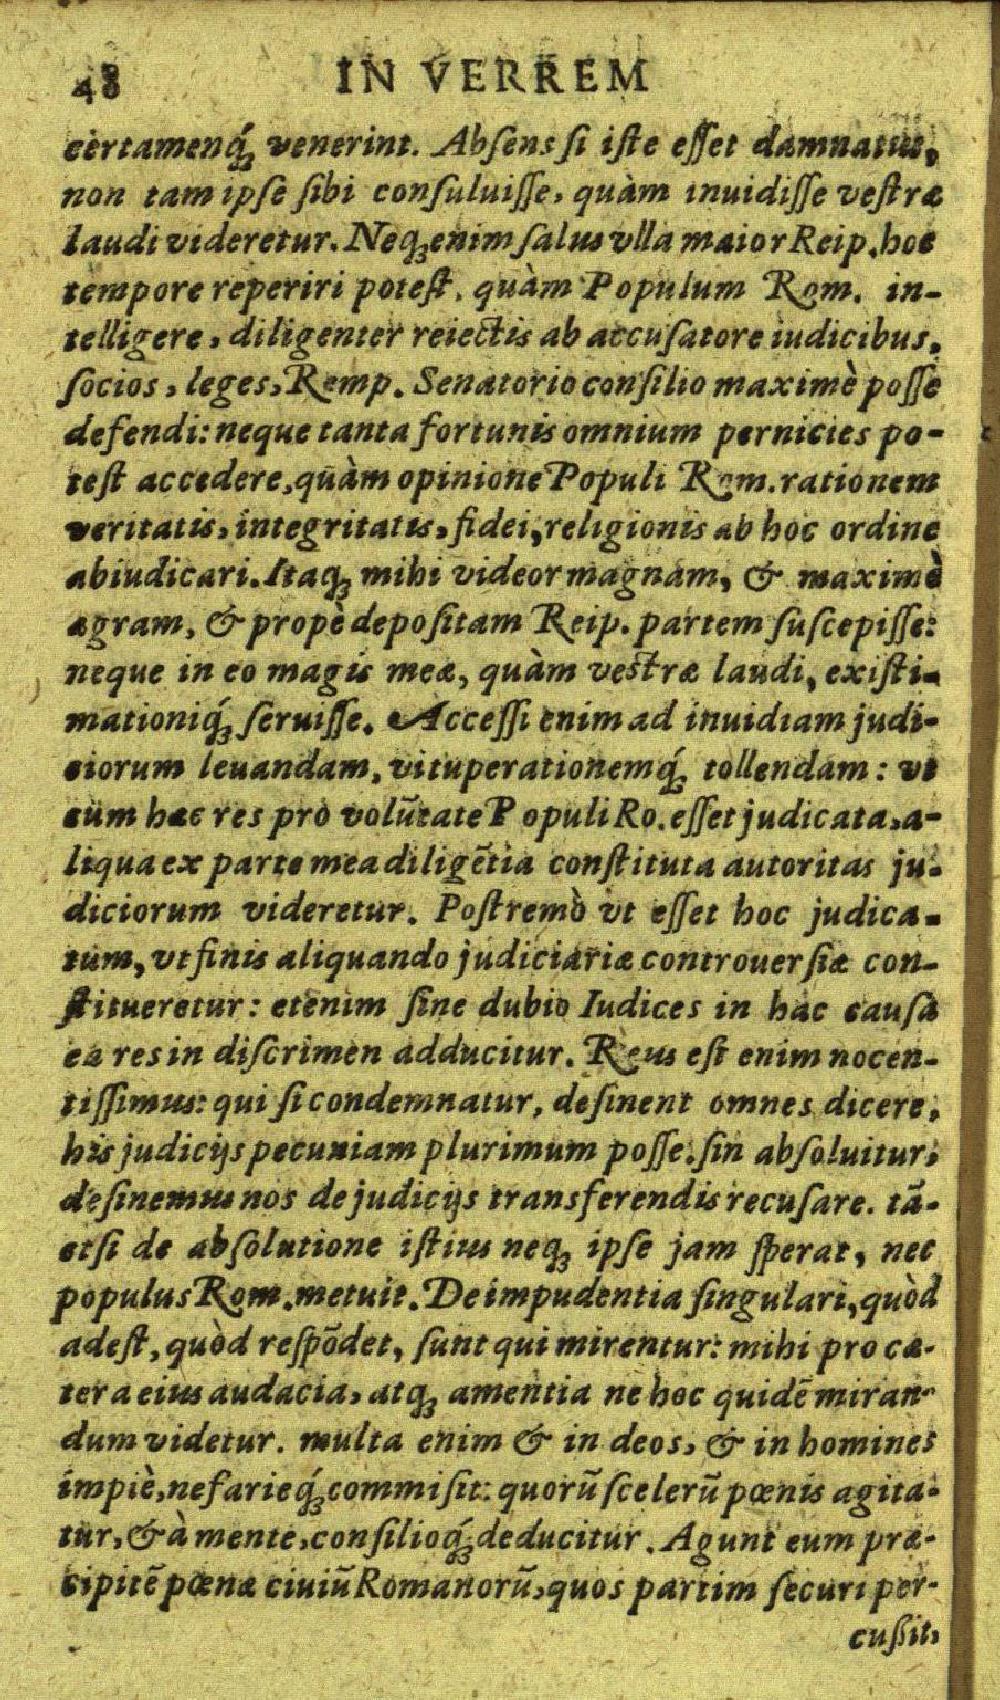 48 IN VERREM
certamenq́ꝫ venerint. Abſens ſi iſte eſſet damnatus,
non tam ipſe ſibi conſuluiſſe, quàm inuidiſſe veſtræ
laudi videretur. Neqꝫ enim ſalus vlla maior Reip. hoc
tempore reperiri poteſt, quàm Populum Rom. in-
telligere, diligenter reiectis ab accuſatore iudicibus,
ſocios, leges, Remp. Senatorio conſilio maximè poſſe
defendi: neque tanta fortunis omnium pernicies po-
teſt accedere, quàm opinione Populi Rom. rationem
veritatis, integritatis, fidei, religionis ab hoc ordine
abiudicari. Itaqꝫ mihi videor magnam, & maximè
ægram, & propè depoſitam Reip. partem ſuſcepiſſe:
neque in eo magis meæ, quàm veſtræ laudi, exiſti-
mationiq́ꝫ ſeruiſſe. Acceſſi enim ad inuidiam judi-
ciorum leuandam, vituperationemq́ꝫ tollendam: vt
cùm hæc res pro volūtate Populi Ro. eſſet judicata, a-
liqua ex parte mea diligētia conſtituta autoritas ju-
diciorum videretur. Poſtremò vt eſſet hoc judica-
tum, vt finis aliquando judiciariæ controuerſiæ con-
ſtitueretur: etenim ſine dubio Iudices in hac cauſa
ea res in diſcrimen adducitur. Reus eſt enim nocen-
tiſſimus: qui ſi condemnatur, deſinent omnes dicere,
his judicijs pecuniam plurimum poſſe. ſin abſoluitur,
deſinemus nos de judicijs transferendis recuſare. tā-
etſi de abſolutione iſtius neqꝫ ipſe jam ſperat, nec
populus Rom. metuit. De impudentia ſingulari, quòd
adeſt, quòd reſpōdet, ſunt qui mirentur: mihi pro cæ-
tera eius audacia, atqꝫ amentia ne hoc quidē miran-
dum videtur. multa enim & in deos, & in homines
impiè, nefarieq́ꝫ commiſit: quorū ſcelerū pœnis agita-
tur, & à mente, conſilioq́ꝫ deducitur. Agunt eum præ-
cipitē pœnæ ciuiū Romanorū, quos partim ſecuri per-
cuſſit,